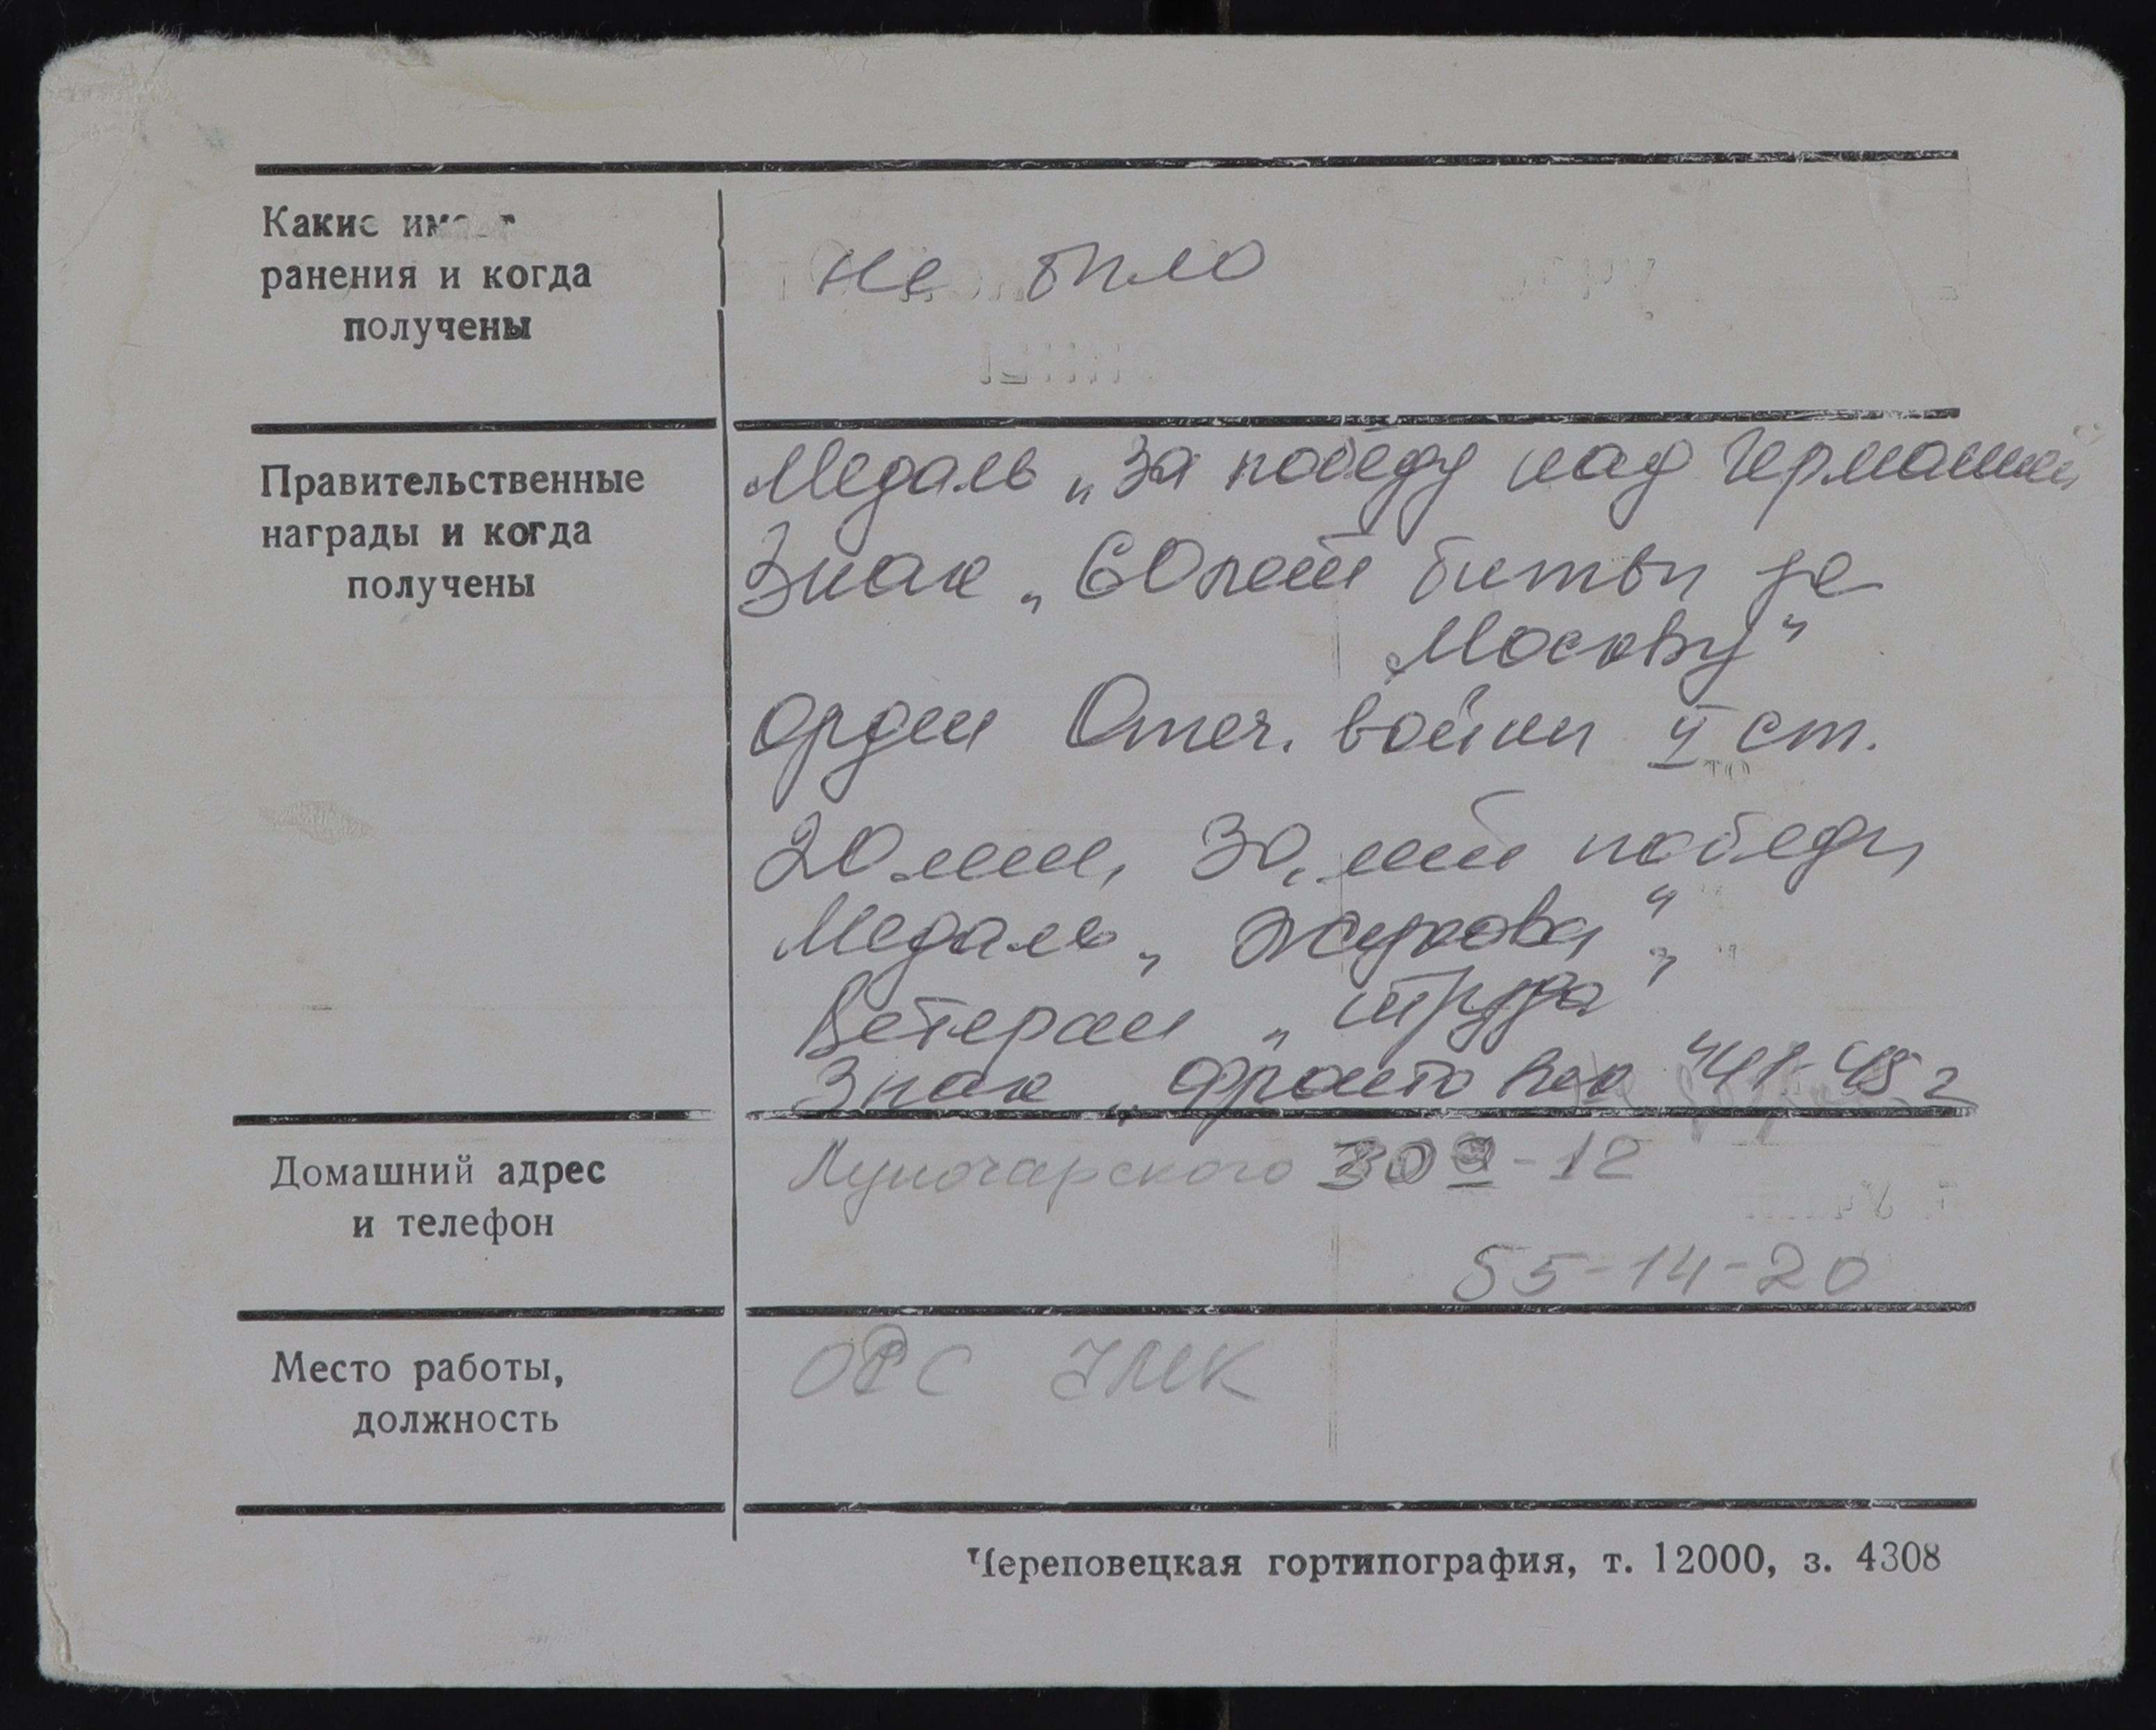 Какие имеет
ранения и когда
получены
не было
Правительственные
награды и когда
получены
Медаль „За победу над Германией
Знак „60 лет битвы за
Москву"
Орден Отеч. войны II ст.
20 лет, 30, лет победы
Медаль „Жукова",
Ветеран „труда"
Знак „Фронтовик "41-45 г
Домашний адрес
и телефон
Луначарского 30 - 12
55-14-20
Место работы,
должность
ОРС ЧМК
Череповецкая гортипография, т. 12000, з. 4308